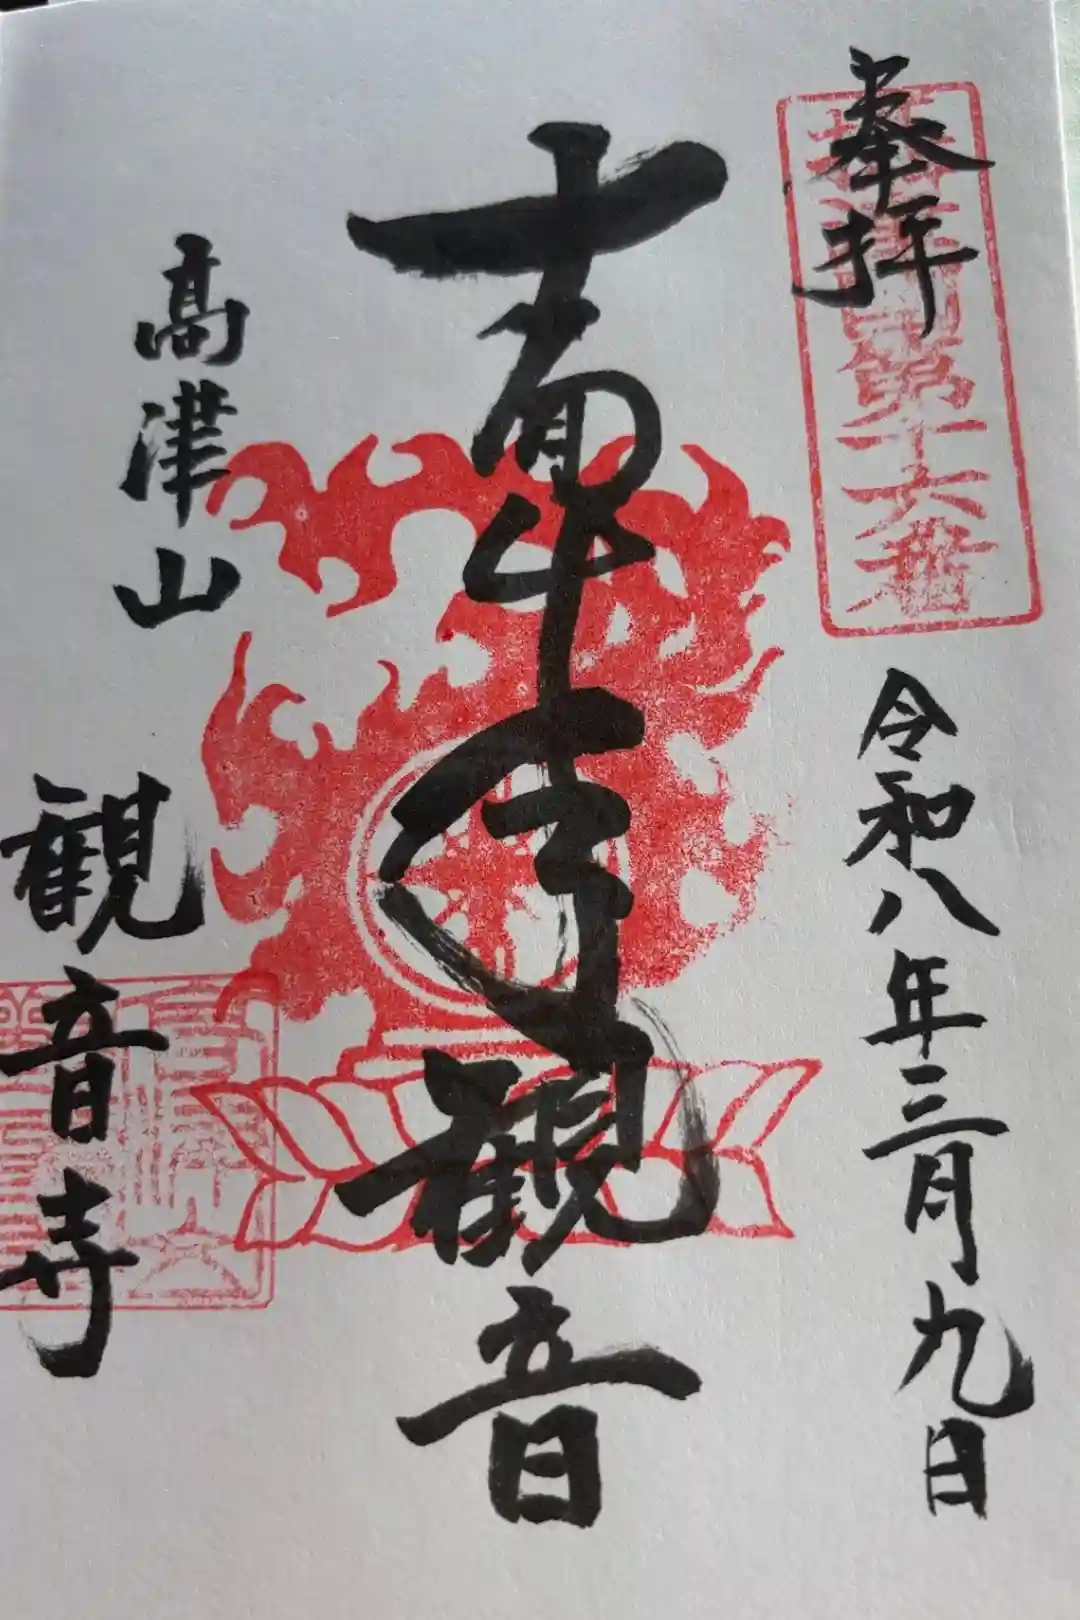 奉拝
摂津国第十六番
令和八年三月九日
十一面千手観音
高津山
観音寺